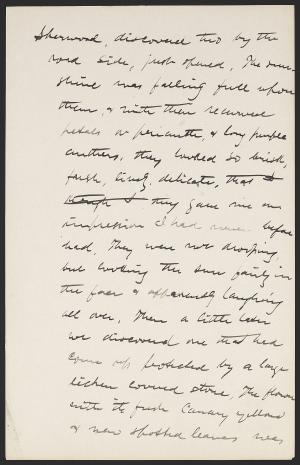 Sherwood, discovered two by the
road side, just opened. The sun-
shine was falling full upon
them, & with their recurved
petals or perianth, & long purple
anthers, they looked so brisk,
fresh, lively, delicate, that I
though I they gave me an
impression I had never before
had. They were not drooping,
but looking the sun fairly in
the face & apparently laughing
all over. Then a little later
we discovered one that had
come up protected by a large
lichen covered stone. The flower
with its fresh Canary yellow
& new spotted leaves was